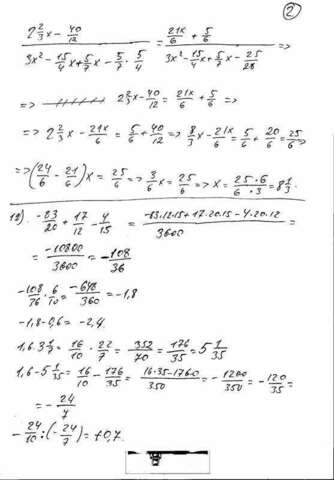 2
(2 2/3 x - 40/12)/(3x² - 15/4 x + 5/7 x - 5/7 · 5/4) = (21x/6 + 5/6)/(3x² - 15/4 x + 5/7 x - 25/28) =>
=> 2 2/3 x - 40/12 = 21x/6 + 5/6 =>
=> 2 2/3 x - 21x/6 = 5/6 + 40/12 => 8/3 x - 21x/6 = 5/6 + 20/6 = 25/6 =>
=> (24/6 - 21/6) x = 25/6 => 3/6 x = 25/6 => x = 25·6/6·3 = 8 1/3.
19). -83/20 + 17/12 - 4/15 = (-83·12·15 + 17·20·15 - 4·20·12)/3600 =
= -10800/3600 = -108/36
-108/36 · 6/10 = -648/360 = -1,8
-1,8 - 0,6 = -2,4.
1,6 · 3 1/7 = 16/10 · 22/7 = 352/70 = 176/35 = 5 1/35
1,6 - 5 1/35 = 16/10 - 176/35 = (16·35 - 1760)/350 = -1200/350 = -120/35 =
= -24/7
-24/10 : (-24/7) = +0,7.